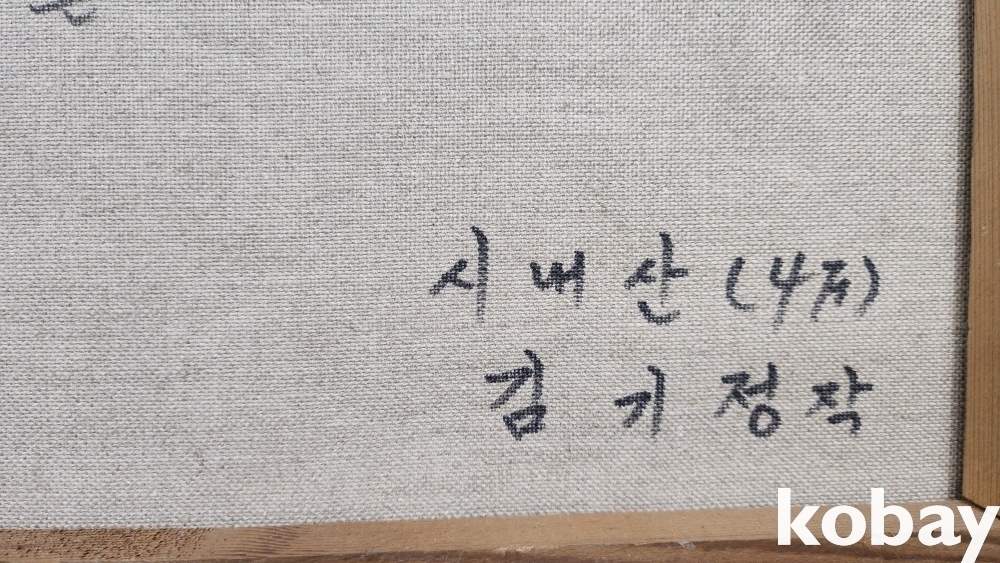 시내산 (4号)
김 기 정 작
kobay